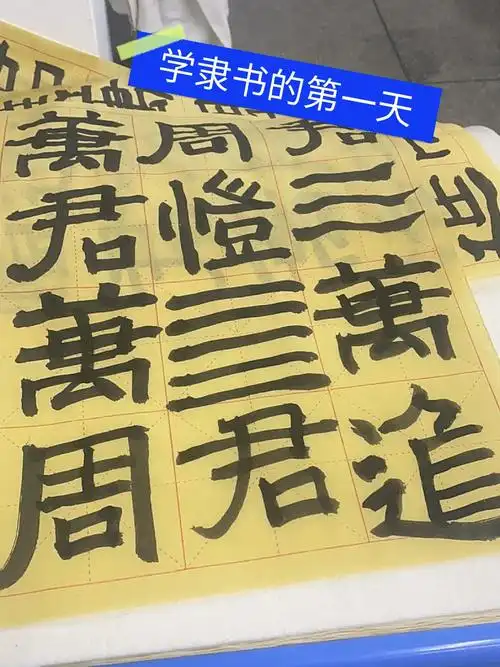 学隶书的第一天
萬周君
君憕三
萬萬
周君追